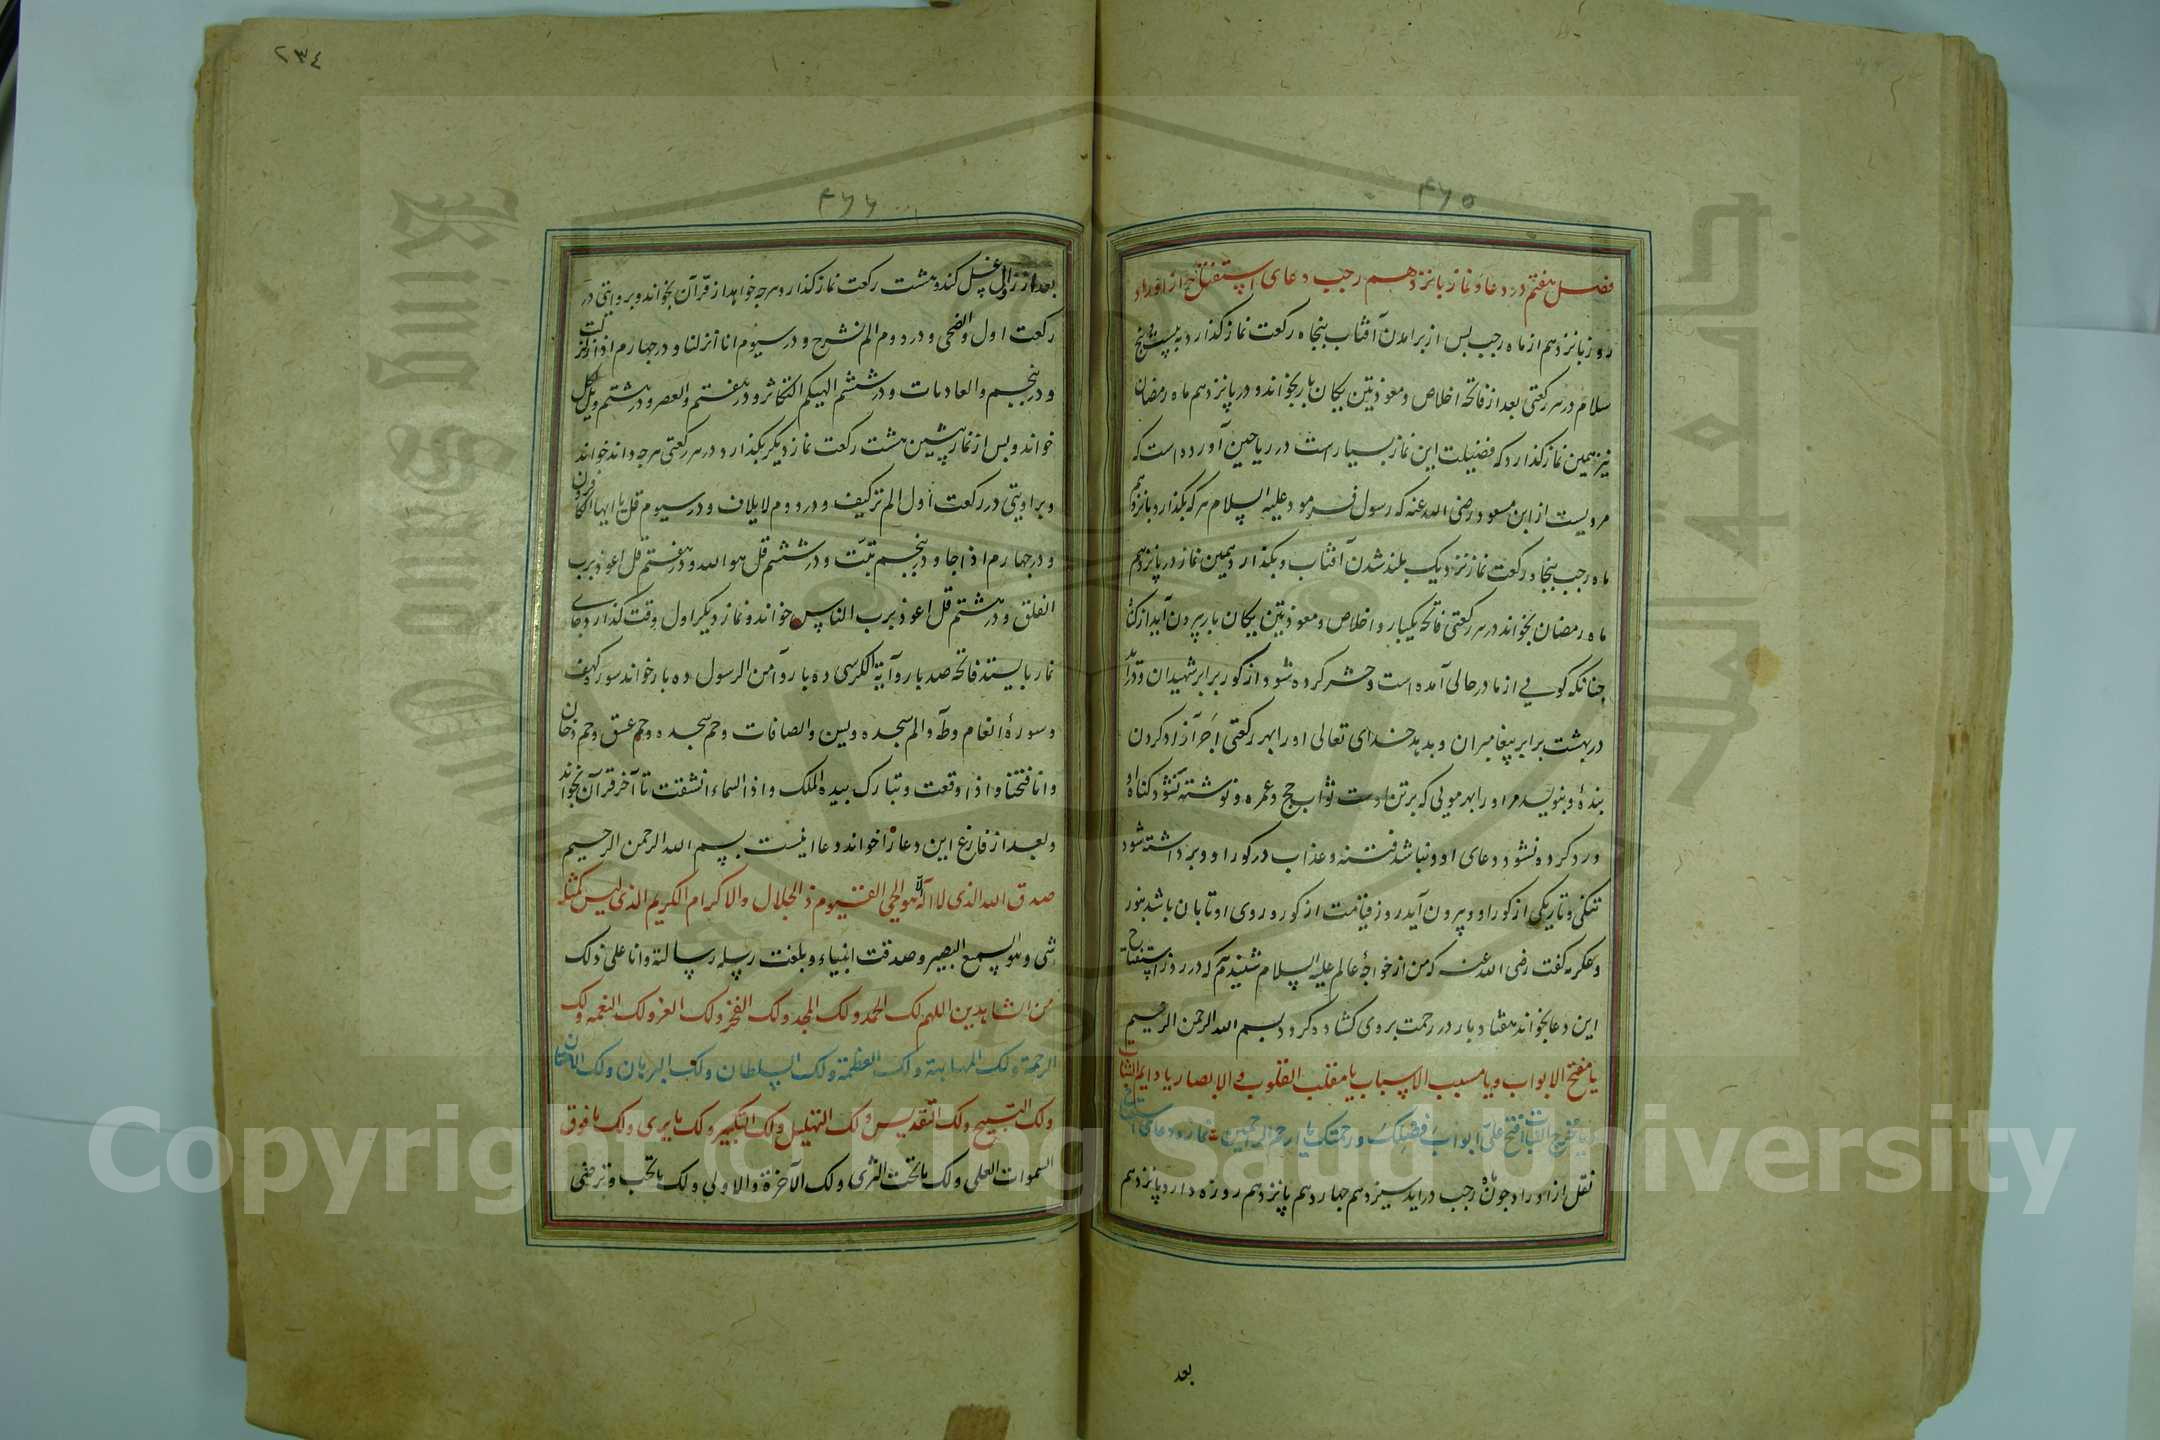 ۴۶۵
فصل هفتم در دعا و نماز پانزدهم رجب و دعای استفتاح از اوراد
روز پانزدهم از ماه رجب پس از برامدن آفتاب پنجاه رکعت نماز گذارد به بیست پنج
سلام در هر رکعتی بعد از فاتحه اخلاص و معوذتین یکان بار بخواند و در پانزدهم ماه رمضان
نیز همین نماز گذارد که فضیلت این نماز بسیار است در ریاحین آورده است که
مرویست از ابن مسعود رضی الله عنه که رسول فرمود علیه السلام هر که بگذارد پانزدهم
ماه رجب پنجاه رکعت نماز نزدیک بلند شدن آفتاب و بگذارد همین نماز در پانزدهم
ماه رمضان بخواند در هر رکعتی فاتحه یکبار و اخلاص و معوذتین یکان بار بیرون آید از گناه
چنانکه گویی از مادر حالی آمده است و حشر کرده شود از گور برابر شهیدان و درآید
در بهشت برابر پیغامبران و بدهد خدای تعالی او را بهر رکعتی اجر آزاد کردن
بندهٔ و بنویسد مر او را بهر مویی که برتن اوست ثواب حج و عمره و نوشته نشود گناه او
و رد کرده نشود دعای او و نباشد فتنه و عذاب در گور او و برداشته شود
تنگی و تاریکی از گور او و بیرون آید روز قیامت از گور و روی او تابان باشد بنور
و عکرمه گفت رضی الله عنه که من از خواجهٔ عالم علیه السلام شنیدم که در روز استفتاح
این دعا بخواند هفتاد بار در رحمت بروی کشاده گردد بسم الله الرحمن الرحیم
یا مفتح الابواب و یا مسبب الاسباب یا مقلب القلوب و الابصار یا دایم الثبات
افتح علی ابواب فضلک و رحمتک یا ارحم الراحمین نماز و دعای استفتاح
نقل از اوراد چون ماه رجب دراید سیزدهم چهاردهم پانزدهم روزه دارد پانزدهم
بعد
۲۳٤
۴۶۶
بعد از زوال غسل کند و هشت رکعت نماز گذارد و هرچه خواهد از قرآن بخواند و بروایتی در
رکعت اول والضحی و در دوم الم نشرح و در سیوم انا انزلنا و در چهارم اذا زلزلت
و در پنجم والعادیات و در ششم الهیکم التکاثر و در هفتم والعصر و در هشتم ویل لکل
خواند و پس از نماز پیشین هشت رکعت نماز دیگر بگذارد و در هر رکعتی هرچه داند خواند
و بروایتی در رکعت اول الم تر کیف و در دوم لایلاف و در سیوم قل یا ایها الکافرون
و در چهارم اذا جا و در پنجم تبت و در ششم قل هو الله و در هفتم قل اعوذ برب
الفلق و در هشتم قل اعوذ برب الناس خواند و نماز دیگر اول وقت گذارد بجای
نماز بایستد فاتحه صد بار و آیة الکرسی ده بار و آمن الرسول ده بار خواند سوره کهف
و سورهٔ انعام و طه و الم سجده و یس و الصافات و حم سجده و حم عسق و حم دخان
و انا فتحنا و اذا وقعت و تبارک بیده الملک و اذا السماء انشقت تا آخر قرآن بخواند
و بعد از فارغ این دعا را خواند دعا اینست بسم الله الرحمن الرحیم
صدق الله الذی لا اله الا هو الحی القیوم ذ الجلال والاکرام الکریم الذی لیس کمثله
شی و هو السمیع البصیر و صدقت انبیاءه و بلغت رسله رسالته و انا علی ذلک
من الشاهدین اللهم لک الحمد و لک المجد و لک الفخر و لک العز و لک النعمه و لک
الرحمة و لک المهابة و لک العظمة و لک السلطان و لک البرهان و لک الامتنان
و لک التسبیح و لک التقدیس و لک التهلیل و لک التکبیر و لک ما یری و لک ما فوق
السموات العلی و لک ما تحت الثری و لک الآخرة والاولی و لک ما تحب و ترضی
King Saud University
Copyright © King Saud University